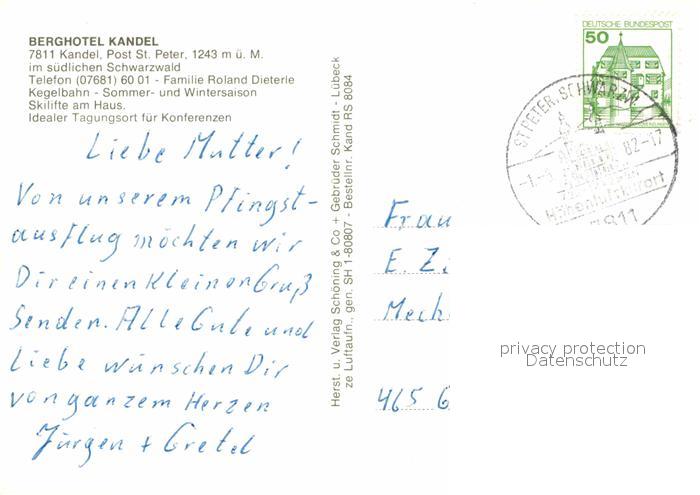 BERGHOTEL KANDEL
7811 Kandel, Post St. Peter, 1243 m ü. M.
im südlichen Schwarzwald
Telefon (07681) 60 01 - Familie Roland Dieterle
Kegelbahn - Sommer- und Wintersaison
Skilifte am Haus.
Idealer Tagungsort für Konferenzen
Liebe Mutter!
Von unserem Pfingst-
ausflug möchten wir
Dir einen kleinen Gruß
senden. Alle Gute und
Liebe wünschen Dir
von ganzem Herzen
Jürgen + Gretel
Herst. u. Verlag Schöning & Co + Gebrüder Schmidt - Lübeck
ze Luftaufn., gen. SH 1-80807 - Bestellnr. Kand RS 8084
DEUTSCHE BUNDESPOST
50
ST PETER, SCHWARZW
82-17
Höhenluftkurort
7811
Frau
E. Z.
Mech
465 G
privacy protection
Datenschutz